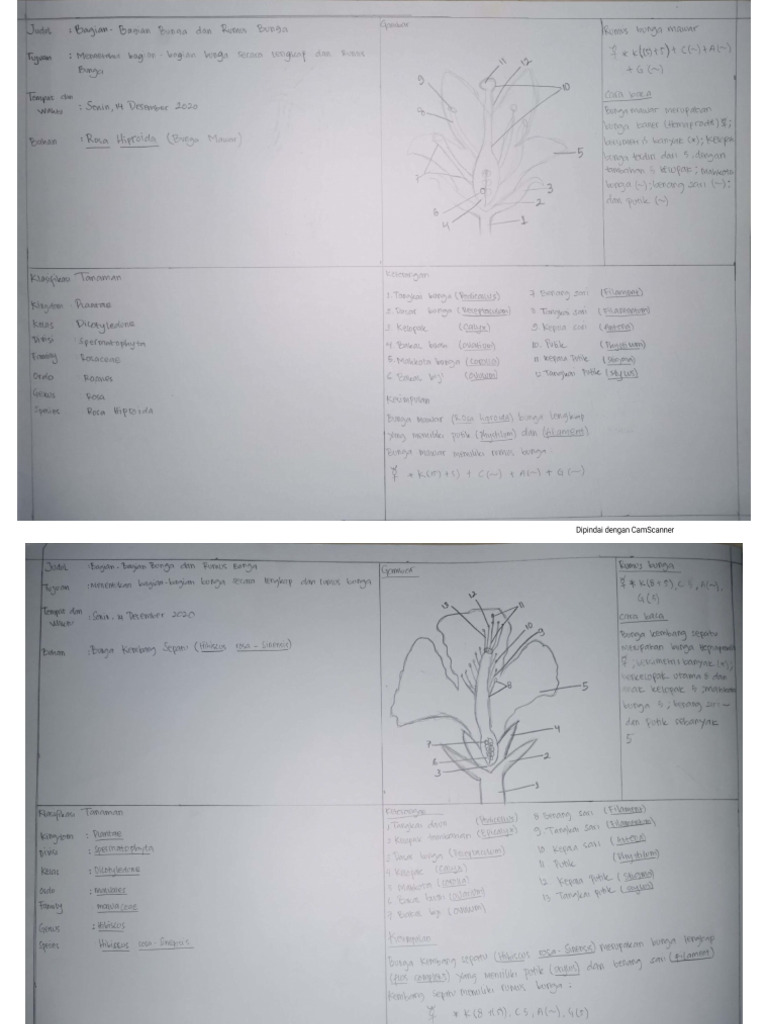 Judul : Bagian-Bagian Bunga dan Rumus Bunga
Tujuan : Menentukan bagian-bagian bunga secara lengkap dan Rumus
Bunga
Tempat dan
Waktu : Senin, 14 Desember 2020
Bahan : Rosa Hiproida (Bunga Mawar)
Gambar
11 12
9 10
8
7 5
3
6 2
4 1
Rumus bunga mawar
+ G (~)
Cara baca
Bunga mawar merupakan
bunga
banyak (*); Kelopak
bunga terdiri dari 5 dengan
tambahan 5 kelopak; Mahkota
bunga (~); benang sari (~);
dan putik (~)
Klasifikasi Tanaman
Kingdom Plantae
Kelas Dicotyledine
Divisi Spermatophyta
Family Rosaceae
Ordo Rosales
Genus Rosa
Species Rosa Hiproida
Keterangan
1. Tangkai bunga (Pedicellus)
2. Dasar bunga (Receptaculum)
3. Kelopak (Calyx)
4. Bakal buah (ovarium)
5. Mahkota bunga (Corolla)
6. Bakal biji (ovulum)
7. Benang sari (Filament)
8. Tangkai sari (Filamentum)
9. Kepala sari (Antera)
10. Putik (Phystilum)
11. Kepala Putik (Stigma)
12. Tangkai Putik (Stylus)
Kesimpulan
Bunga Mawar (Rosa hiproida) bunga lengkap
yang memiliki putik (Phystilum) dan (Filament)
Bunga Mawar memiliki rumus bunga
+ C (~) + A (~) + G (~)
Dipindai dengan CamScanner
Judul : Bagian-Bagian Bunga dan Rumus Bunga
Tujuan : Menentukan bagian-bagian bunga secara lengkap dan rumus bunga
Tempat dan
Waktu : Senin, 14 Desember 2020
Bahan : Bunga Kembang Sepatu (Hibiscus rosa-Sinensis)
Gambar
12 11
13 10
9
8 5
4
7
6 2
3
1
Rumus bunga
G (5)
Cara baca
Bunga kembang sepatu
merupakan bunga
banyak (*);
berkelopak utama 5 dan
anak kelopak
bunga 5; benang sari ~
dan Putik sebanyak
5
Klasifikasi Tanaman
Kingdom : Plantae
Divisi : Spermatophyta
Kelas : Dicotyledine
Ordo : Malvales
Family malvaceae
Genus : Hibiscus
Species Hibiscus rosa-Sinensis
Keterangan
3. Dasar bunga (Receptaculum)
4. Kelopak (Calyx)
5. Mahkota
6. Bakal buah (ovarium)
7. Bakal biji (ovulum)
8. Benang sari (Filament)
9. Tangkai sari (Filamentum)
10. Kepala sari (Antera)
11. Putik (Phystilum)
12. Kepala Putik (Stigma)
13. Tangkai putik (stylus)
Kesimpulan
Bunga Kembang sepatu (Hibiscus rosa-Sinensis) merupakan bunga lengkap
yang memiliki putik (stylus) dan benang sari (Filament)
Kembang sepatu memiliki rumus bunga :